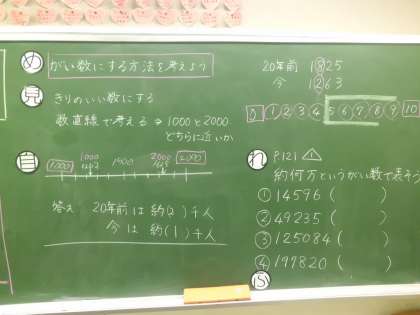 め がい数にする方法を考えよう
見 きりのいい数にする
数直線で考える → 1000と2000
どちらに近いか
自
1000 1500 2000
答え 20年前は約(2)千人
今は約(1)千人
20年前 1825
今 1263
0 1 2 3 4 5 6 7 8 9 10
れ P121 △1
約何万というがい数で表そう
① 14596 ( )
② 49235 ( )
③ 125084 ( )
④ 197820 ( )
ふ